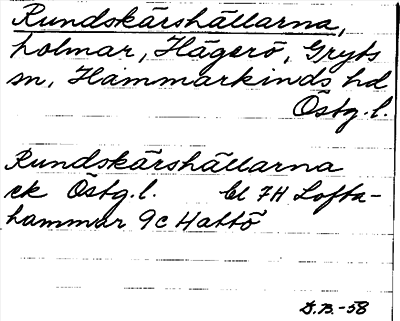 Rundskärshällarna,
holmar, Hägerö, Gryts
sn, Hammarkinds hd
Östg.l.
Rundskärshällarna
ek Östg.l. bl 7H Lofta-
hammar 9c Hattö
D.B.-58